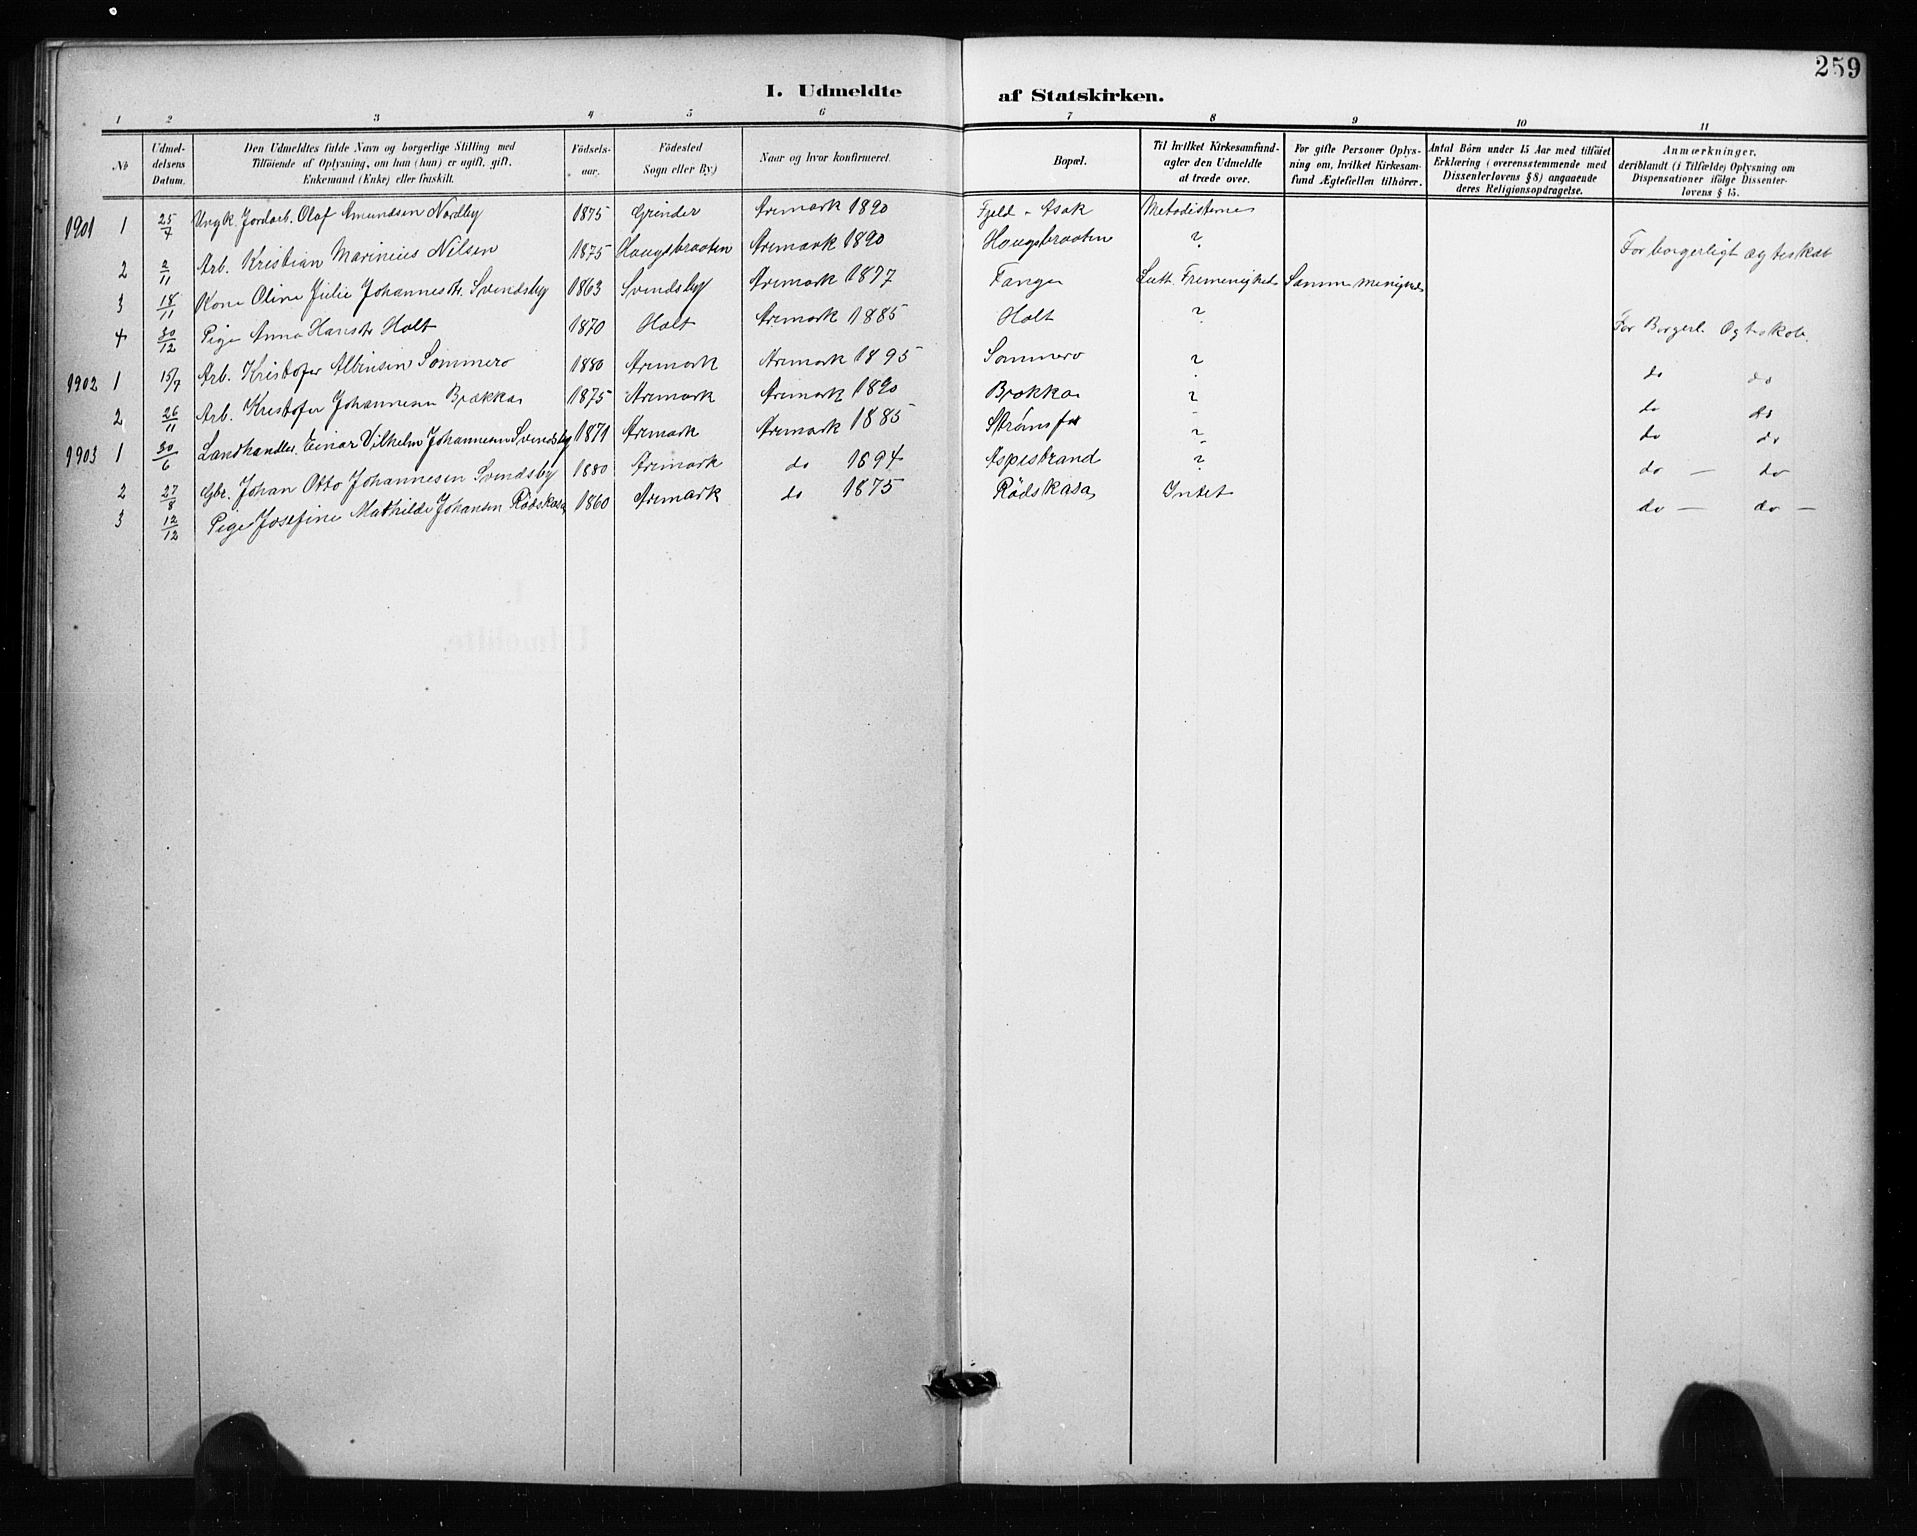 259
I. Udmeldte af Statskirken.
1 2 3 4 5 6 7 8 9 10 11
No
Udmeldelsens Datum.
Den Udmeldtes fulde Navn og borgerlige Stilling med
Tilföiende af Oplysning, om han (hun) er ugift, gift,
Enkemand (Enke) eller fraskilt.
Födselsaar.
Födested
Sogn eller By)
Naar og hvor konfirmeret.
Bopæl.
Til hvilket Kirkesamfund-
agter den Udmeldte
at træde over.
For gifte Personer Oplys-
ning om, hvilket Kirkesam-
fund Ægtefællen tilhörer.
Antal Börn under 15 Aar med tilföiet
Erklæring (overensstemmende med
Dissenterlovens § 8) angaaende
deres Religionsopdragelse.
Anmærkninger,
deriblandt (i Tilfælde) Oplysning om
Dispensationer ifölge Dissenter-
lovens § 15.
1901 1 25/7 Ungk. Jordarb. Olaf Amundsen Nordby 1875 Grinder Aremark 1890 Fjeld - Asak Metodisterne
2 2/11 Arb. Kristian Marinius Nilsen 1875 Haugsbraaten Aremark 1890 Haugsbraaten ? For borgerligt ægteskab
3 18/11 Kone Oline Julie Johannesdtr. Svendsby 1863 Svendsby Aremark 1877 Tange Luth. Frimenighed Samme menighed
4 30/12 Pige Anna Hansdtr Holt 1870 Holt Aremark 1885 Holt ? For Borgerl. Ægteskab.
1902 1 15/7 Arb. Kristofer Albinsen Sommero 1880 Aremark Aremark 1895 Sommero ? do do
2 26/11 Arb. Kristofer Johannesen Brækka 1875 Aremark Aremark 1890 Brækka ? do do
1903 1 30/6 Landhandler Einar Vilhelm Johannesen Svendsby 1871 Aremark Aremark 1885 ? do do
2 27/8 Gbr. Johan Otto Johannesen Svendsby 1880 Aremark do 1694 Aspestrand ? do — do
3 12/12 Pige Josefine Mathilde Johansen Rödskasa 1860 Aremark do 1875 Rödskasa Intet do — do —